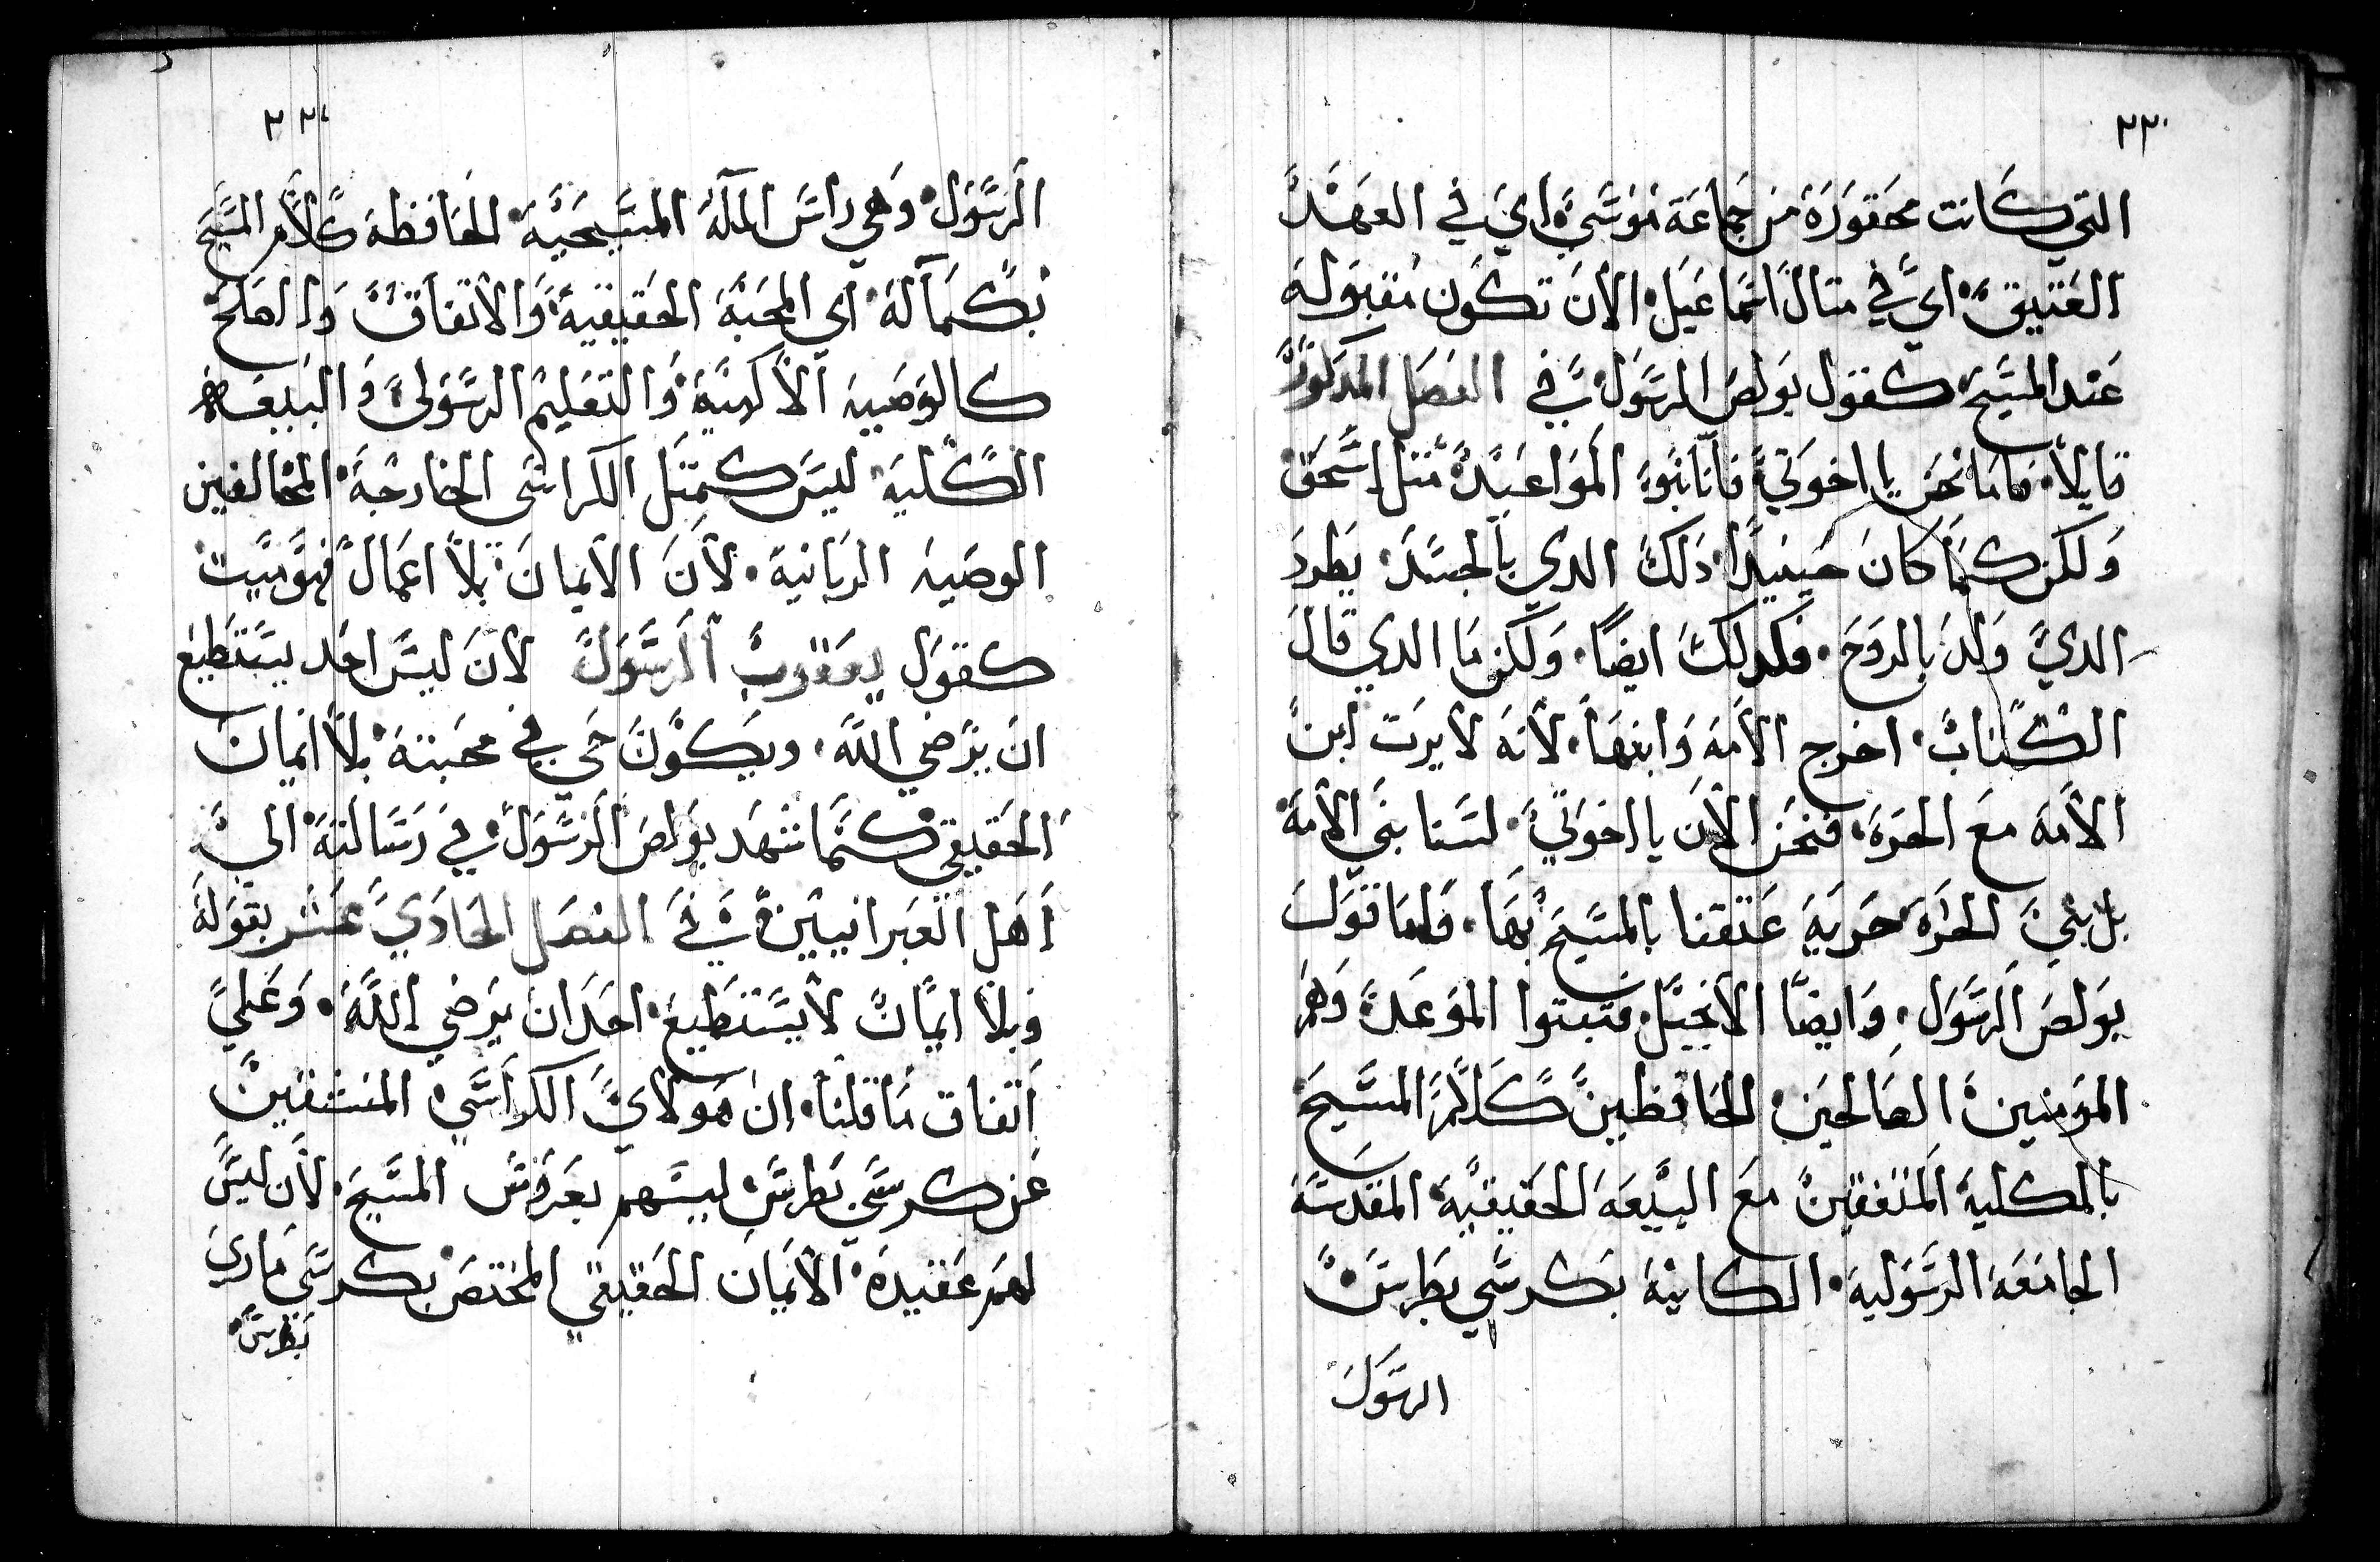 ٢٢٠
التي كانت محقورة من جماعة موسى اي في العهد
العتيق اي في متال اسماعيل الان تكون مقبوله
عند المسيح كقول بولص الرسول في الفصل المدكور
قايلا فاما نحن يا اخوتي فاننا بنوا المواعيد متل اسحق
ولكن كما كان حينيدا دلك الدي بالجسد يطرد
الدي ولد بالروح فكدلك ايضا ولكن ما الدي قال
الكتاب اخرج الامه وابنها لانه لا يرت ابن
الامه مع الحره فنحن الان يا اخوتي لسنا بني الامه
بل بني الحره حريه عتقنا بالمسيح بها فاما قول
بولص الرسول وايضا الانجيل فتبتوا الموعد وهم
المومنين الصالحين الحافظين كلام المسيح
بالمكليه المتفقين مع البيعه الحقيقيه المقدسه
الجامعه الرسوليه الكاينه بكرسي بطرس
الرسول
٢٢١
الرسول وهي راس المله المسيحيه الحافظه كلام المسيح
بكماله اي المحبه الحقيقيه والاتفاق والصلح
كالوصيه الالهيه والتعليم الرسولي والبيعه
الكليه ليس كمتل الكراسي الخارجه المخالفين
الوصيه الربانيه لان الايمان بلا اعمال فهو ميت
كقول يعقوب الرسول لان ليس احد يستطيع
ان يرضي الله ويكون حي في محبته بلا ايمان
الحقيقي كما شهد بولص الرسول في رسالته الي
اهل العبرانيين في الفصل الحادي عشر بقوله
وبلا ايمان لا يستطيع احد ان يرضي الله وعلي
اتفاق ما قلنا ان هولاي الكراسي المنشقين
عن كرسي بطرس ليسهم بعرفت المسيح لان ليس
لهم عقيدة الايمان الحقيقي المختص بكرسي ماري
بطرس